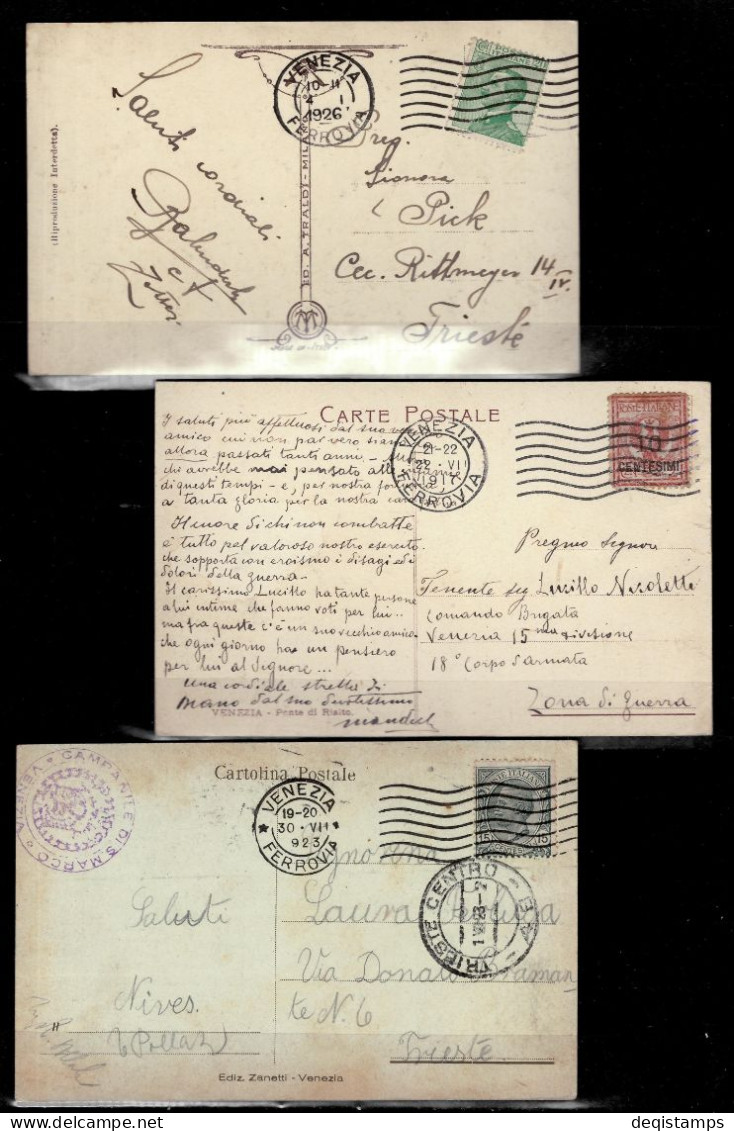 (Riproduzione Interdetta).
Saluti cordiali
ED. A. TRALDI - MILANO
VENEZIA
10-11
4 - I
1926
FERROVIA
Signora
Pick
Cec. Rittmeyer 14
IV.
Trieste
CARTE POSTALE
I saluti più affettuosi dal suo vecchio
amico cui non par vero siano
allora passati tanti anni -
chi avrebbe mai pensato alle
di questi tempi - e, per nostra
a tanta gloria per la nostra
Il cuore di chi non combatte
è tutto pel valoroso nostro esercito
che sopporta con eroismo i disagi ed i
dolori della guerra -
Il carissimo Lucillo ha tante persone
a lui intime che fanno voti per lui...
ma fra queste c'è un suo vecchio amico
che ogni giorno ha un pensiero
per lui al Signore...
una cordiale stretta di
mano dal suo
VENEZIA - Ponte di Rialto.
VENEZIA
21-22
22 · VII
1917
FERROVIA
POSTE ITALIANE
10
CENTESIMI
Pregmo Signore
Tenente Sig Lucillo Nicoletti
Comando Brigata
Venezia 15ma divisione
18° Corpo d'armata
Zona di Guerra
VENEZIA * CAMPANILE DI S. MARCO *
Cartolina Postale
* VENEZIA *
19-20
30 · VII
923
FERROVIA
15 15
TRIESTE CENTRO
Saluti
Nives.
Laura
Via Donato Bramante
N. 6
Trieste
Ediz. Zanetti - Venezia
www.deqistamps.com